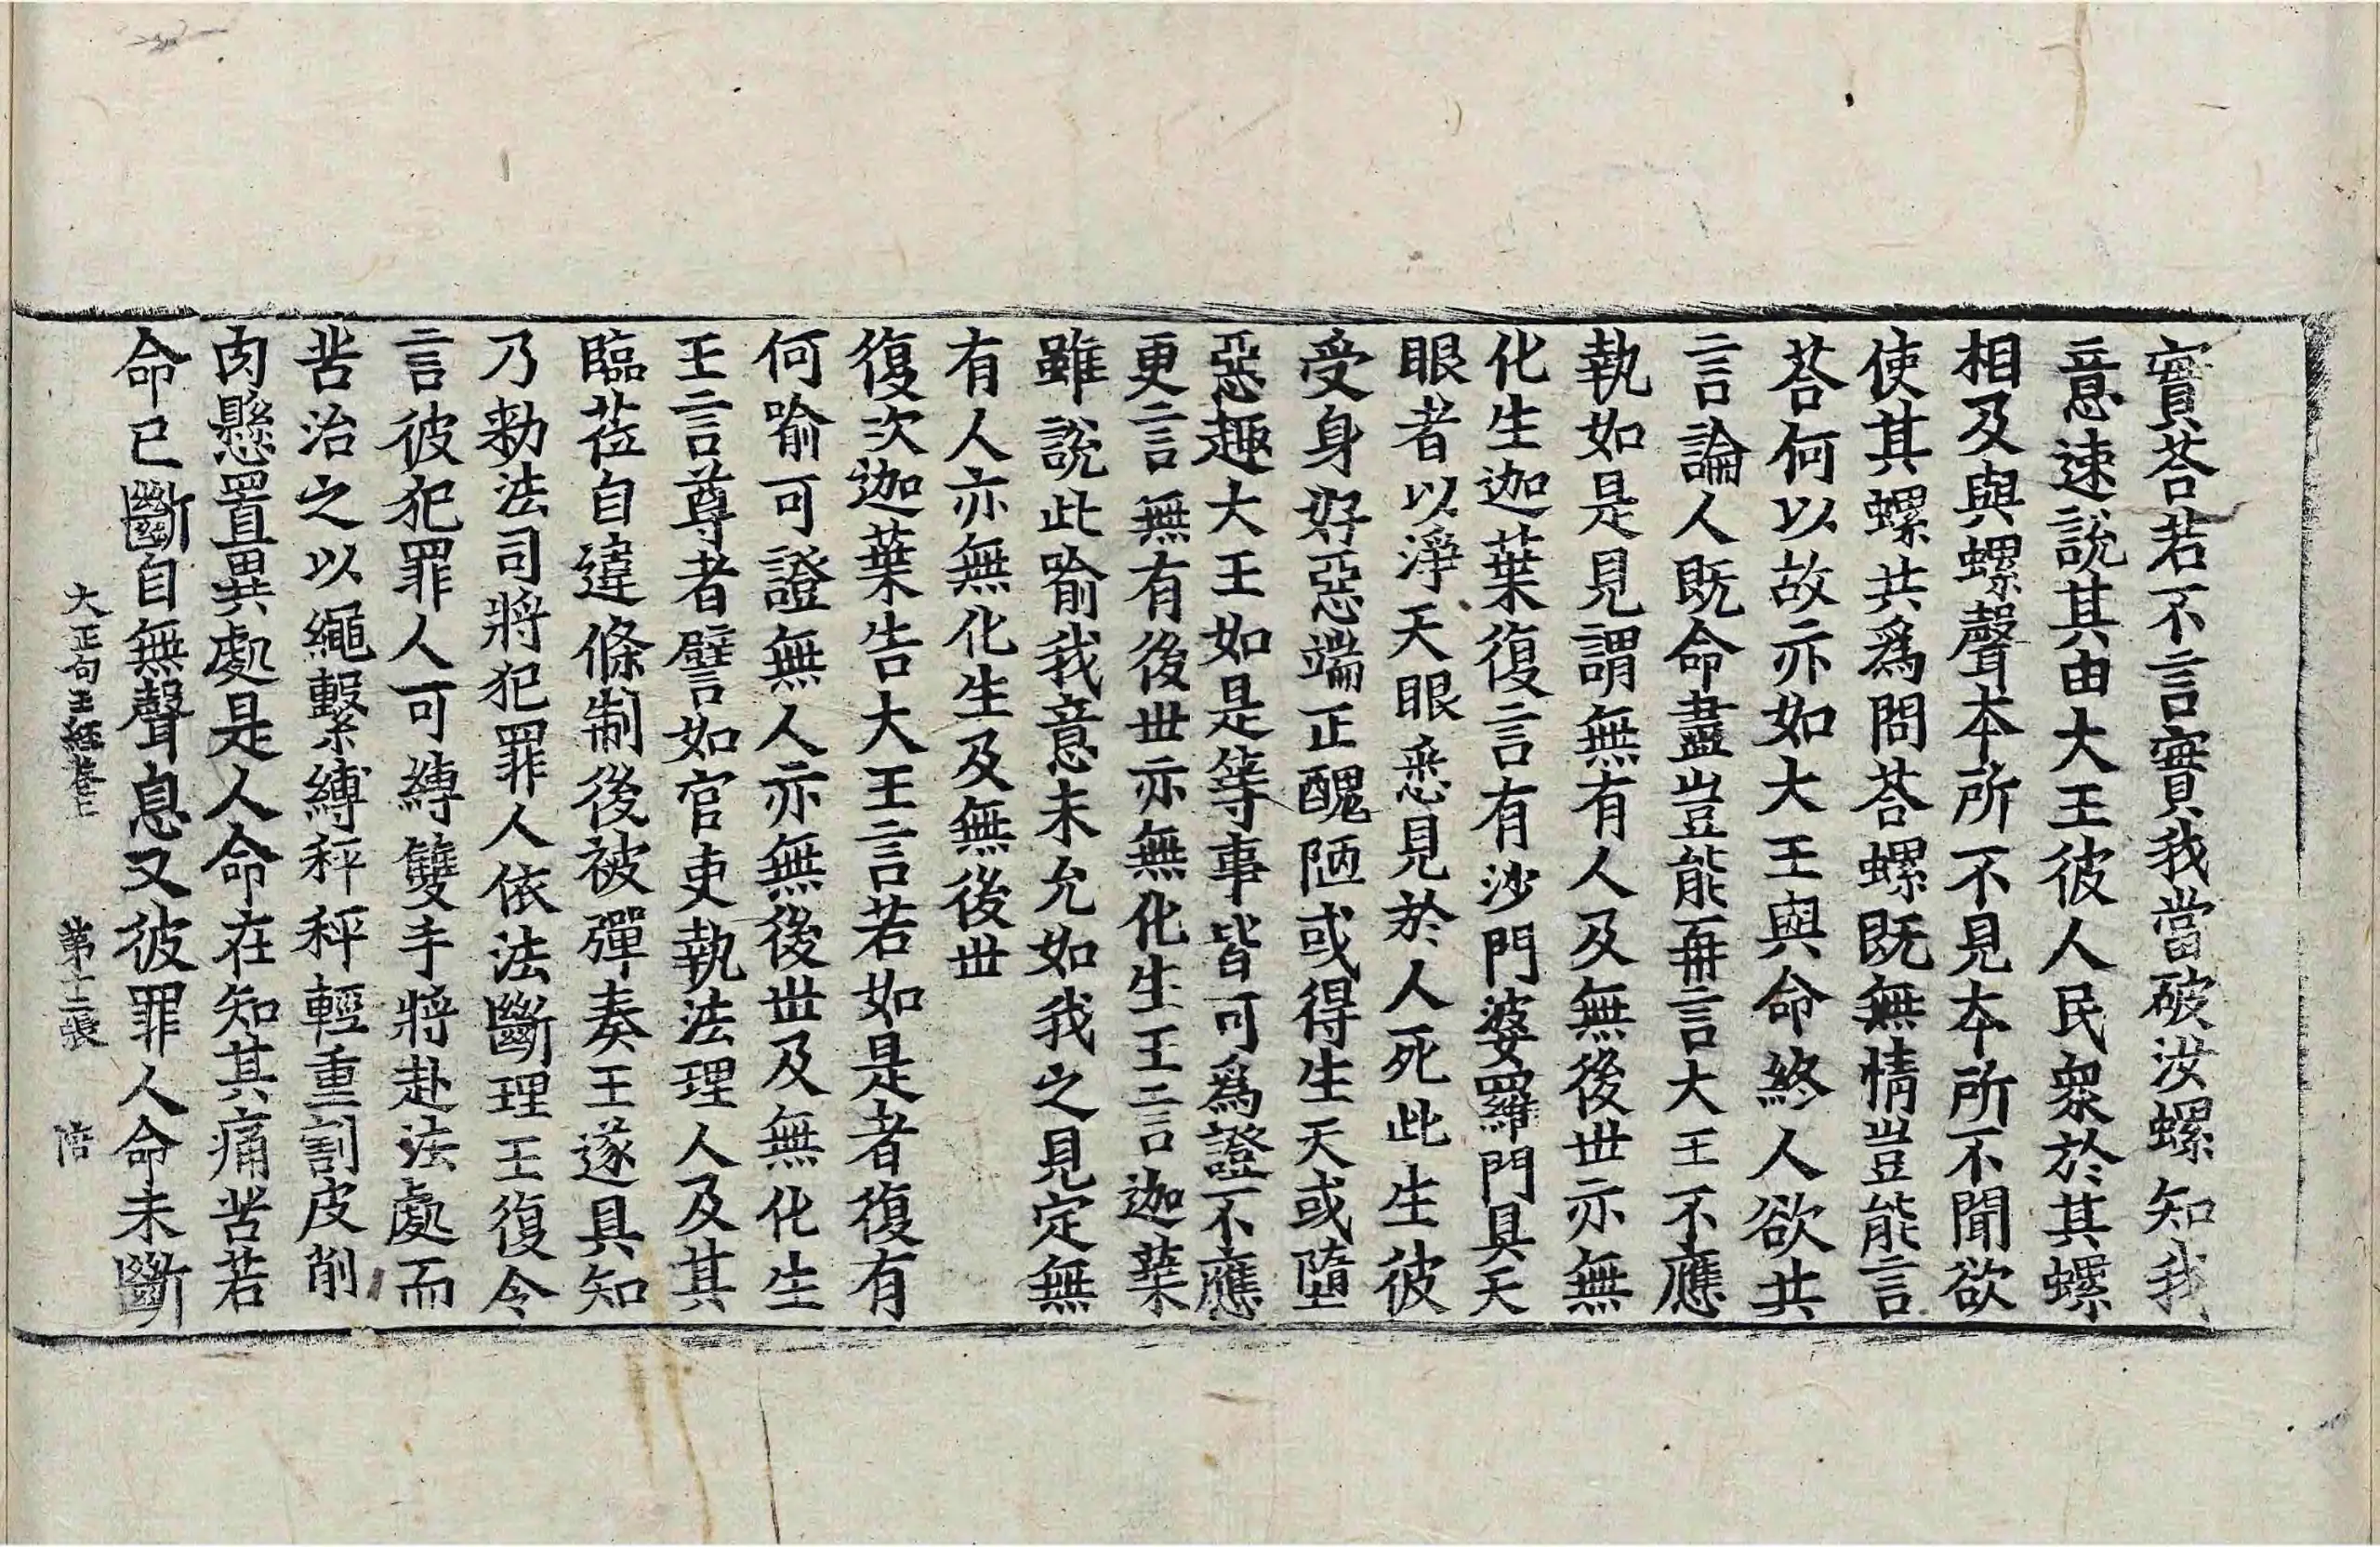 實荅若不言實我當破汝螺知我
意速說其由大王彼人民衆於其螺
相及與螺聲本所不見本所不聞欲
使其螺共爲問荅螺旣無情豈能言
荅何以故亦如大王與命終人欲共
言論人旣命盡豈能再言大王不應
執如是見謂無有人及無後世亦無
化生迦葉復言有沙門婆羅門具天
眼者以淨天眼悉見於人死此生彼
受身好惡端正醜陋或得生天或墮
惡趣大王如是等事皆可爲證不應
更言無有後世亦無化生王言迦葉
雖說此喻我意未允如我之見定無
有人亦無化生及無後世
復次迦葉告大王言若如是者復有
何喻可證無人亦無後世及無化生
王言尊者譬如官吏執法理人及其
臨莅自違條制後被彈奏王遂具知
乃勑法司將犯罪人依法斷理王復令
言彼犯罪人可縛雙手將赴法處而
苦治之以繩繫縛秤秤輕重割皮削
肉懸置異處是人命在知其痛苦若
命已斷自無聲息又彼罪人命未斷
大正句王經卷上 第十二張 浩